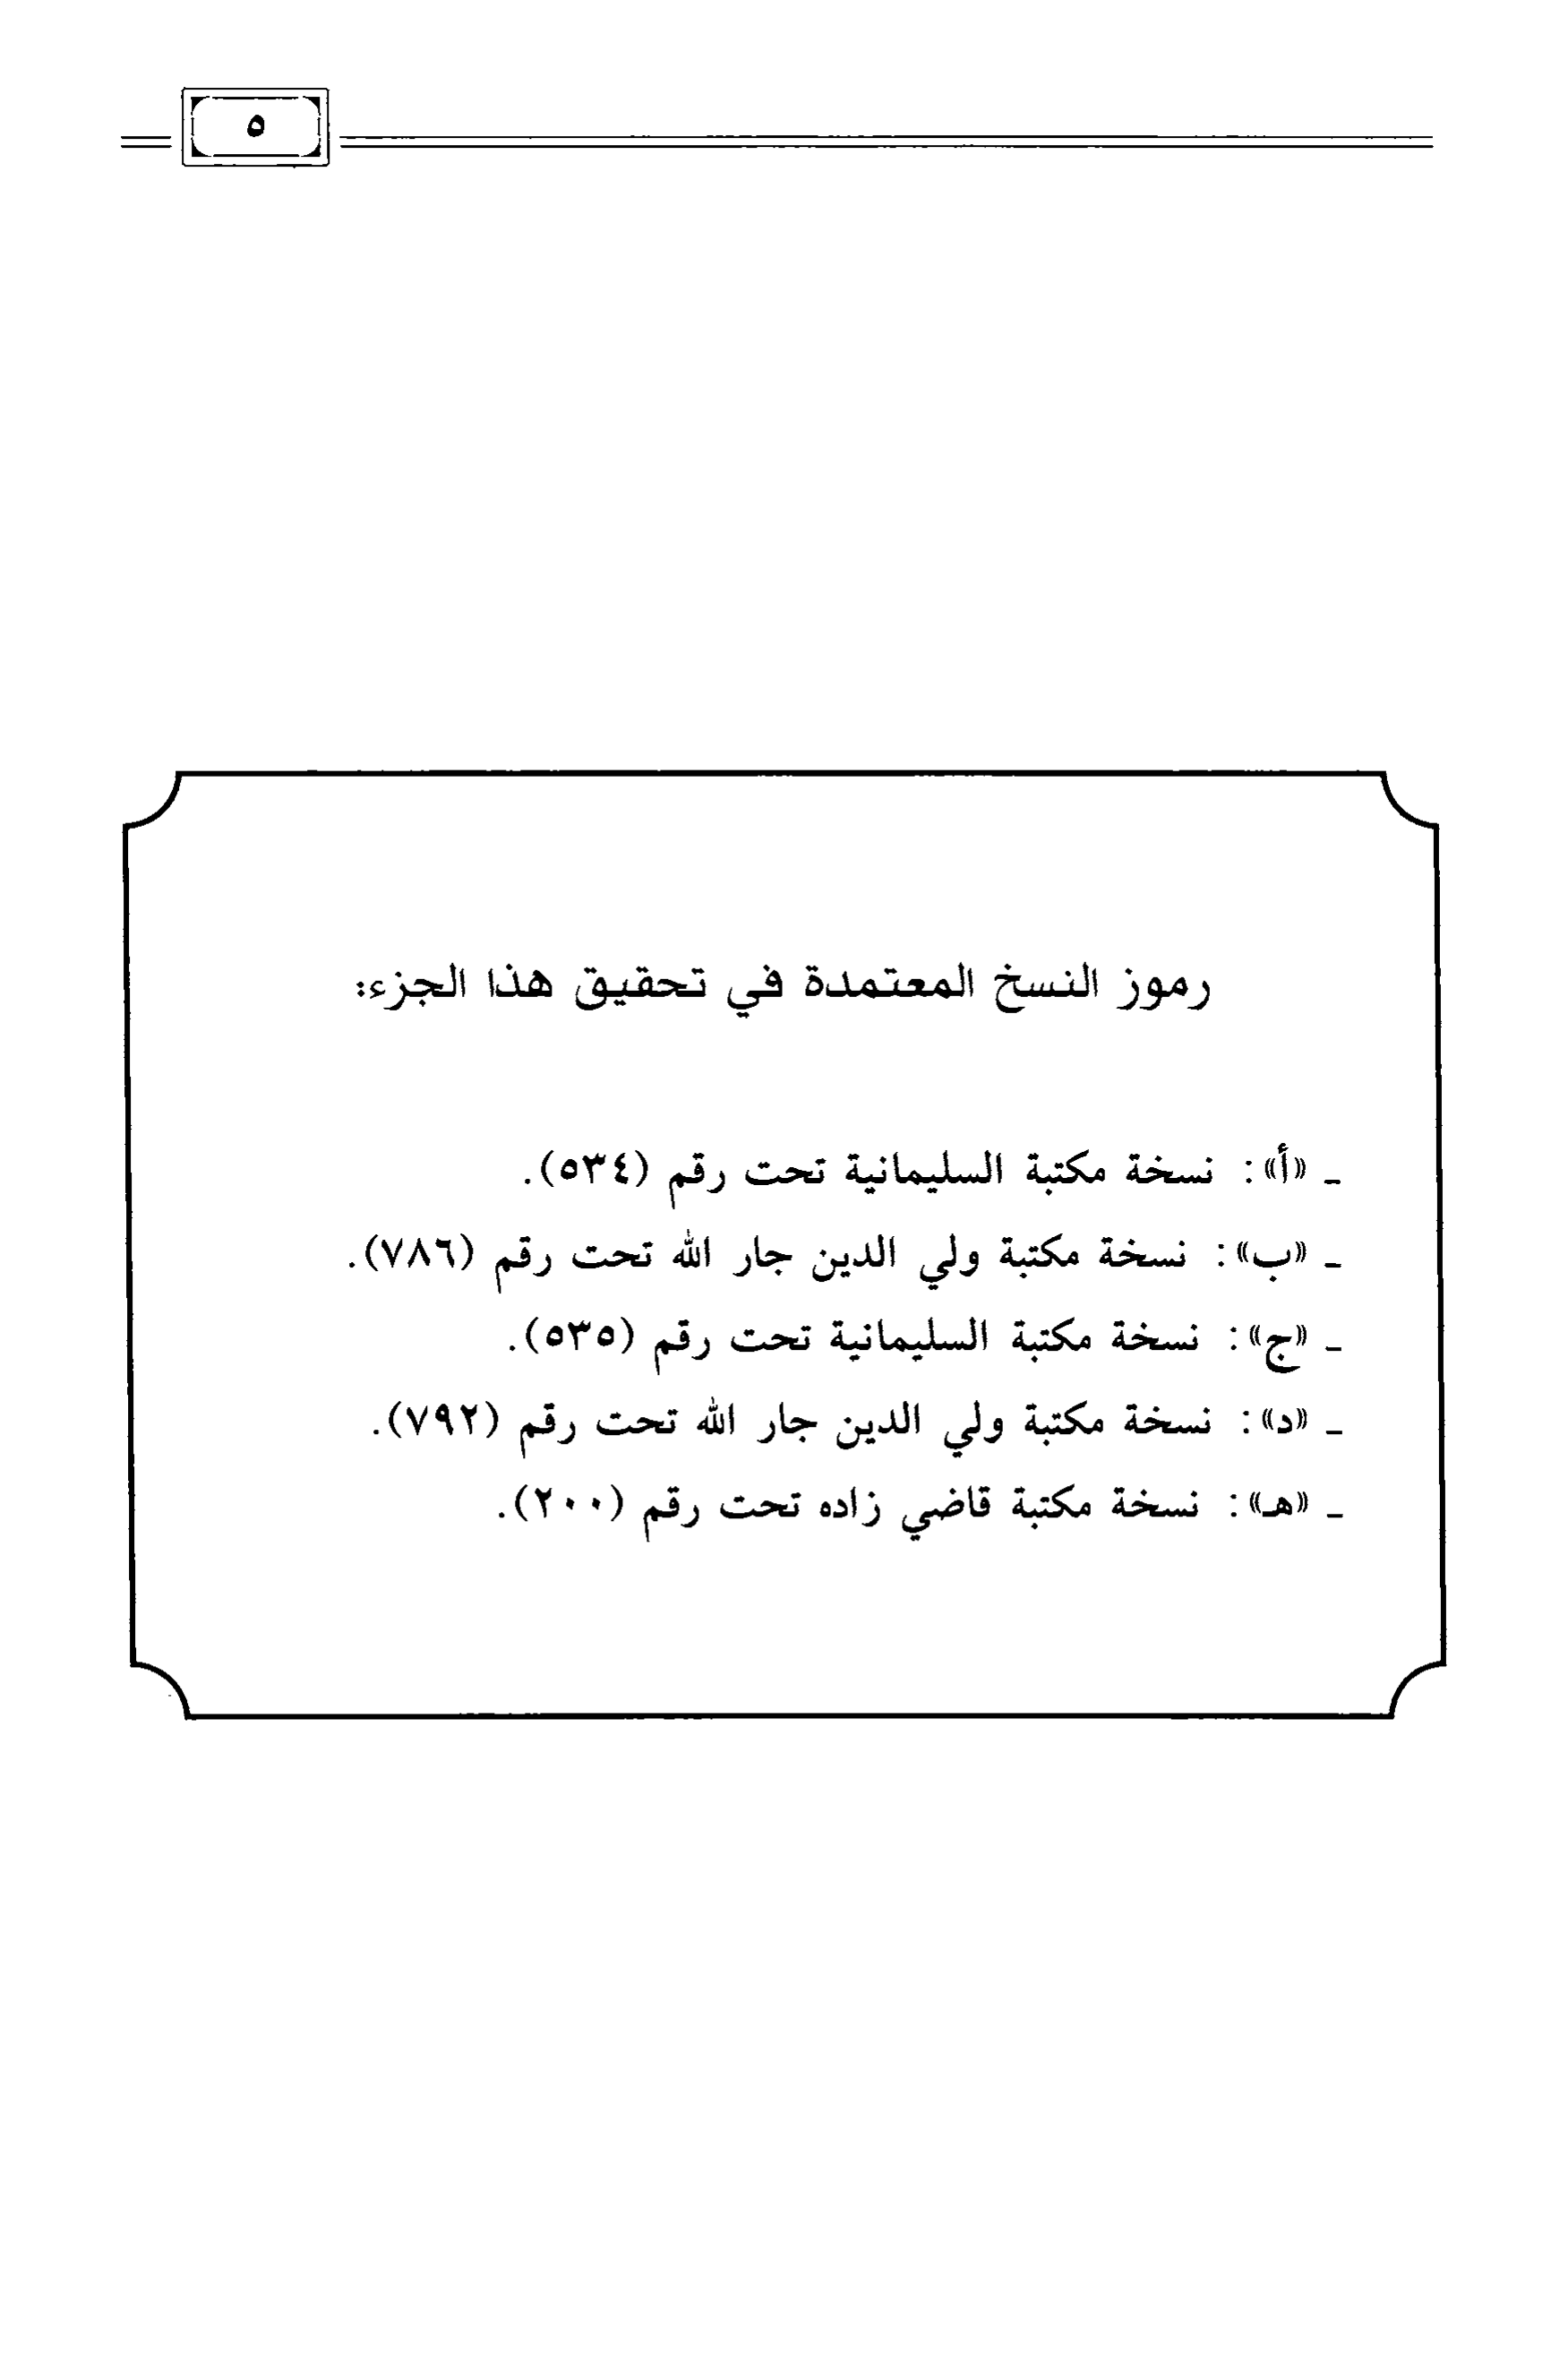 ٥
رموز النسخ المعتمدة في تحقيق هذا الجزء:
ـ «أ»: نسخة مكتبة السليمانية تحت رقم (٥٣٤).
ـ «ب»: نسخة مكتبة ولي الدين جار الله تحت رقم (٧٨٦).
ـ «ج»: نسخة مكتبة السليمانية تحت رقم (٥٣٥).
ـ «د»: نسخة مكتبة ولي الدين جار الله تحت رقم (٧٩٢).
ـ «هـ»: نسخة مكتبة قاضي زاده تحت رقم (٢٠٠).